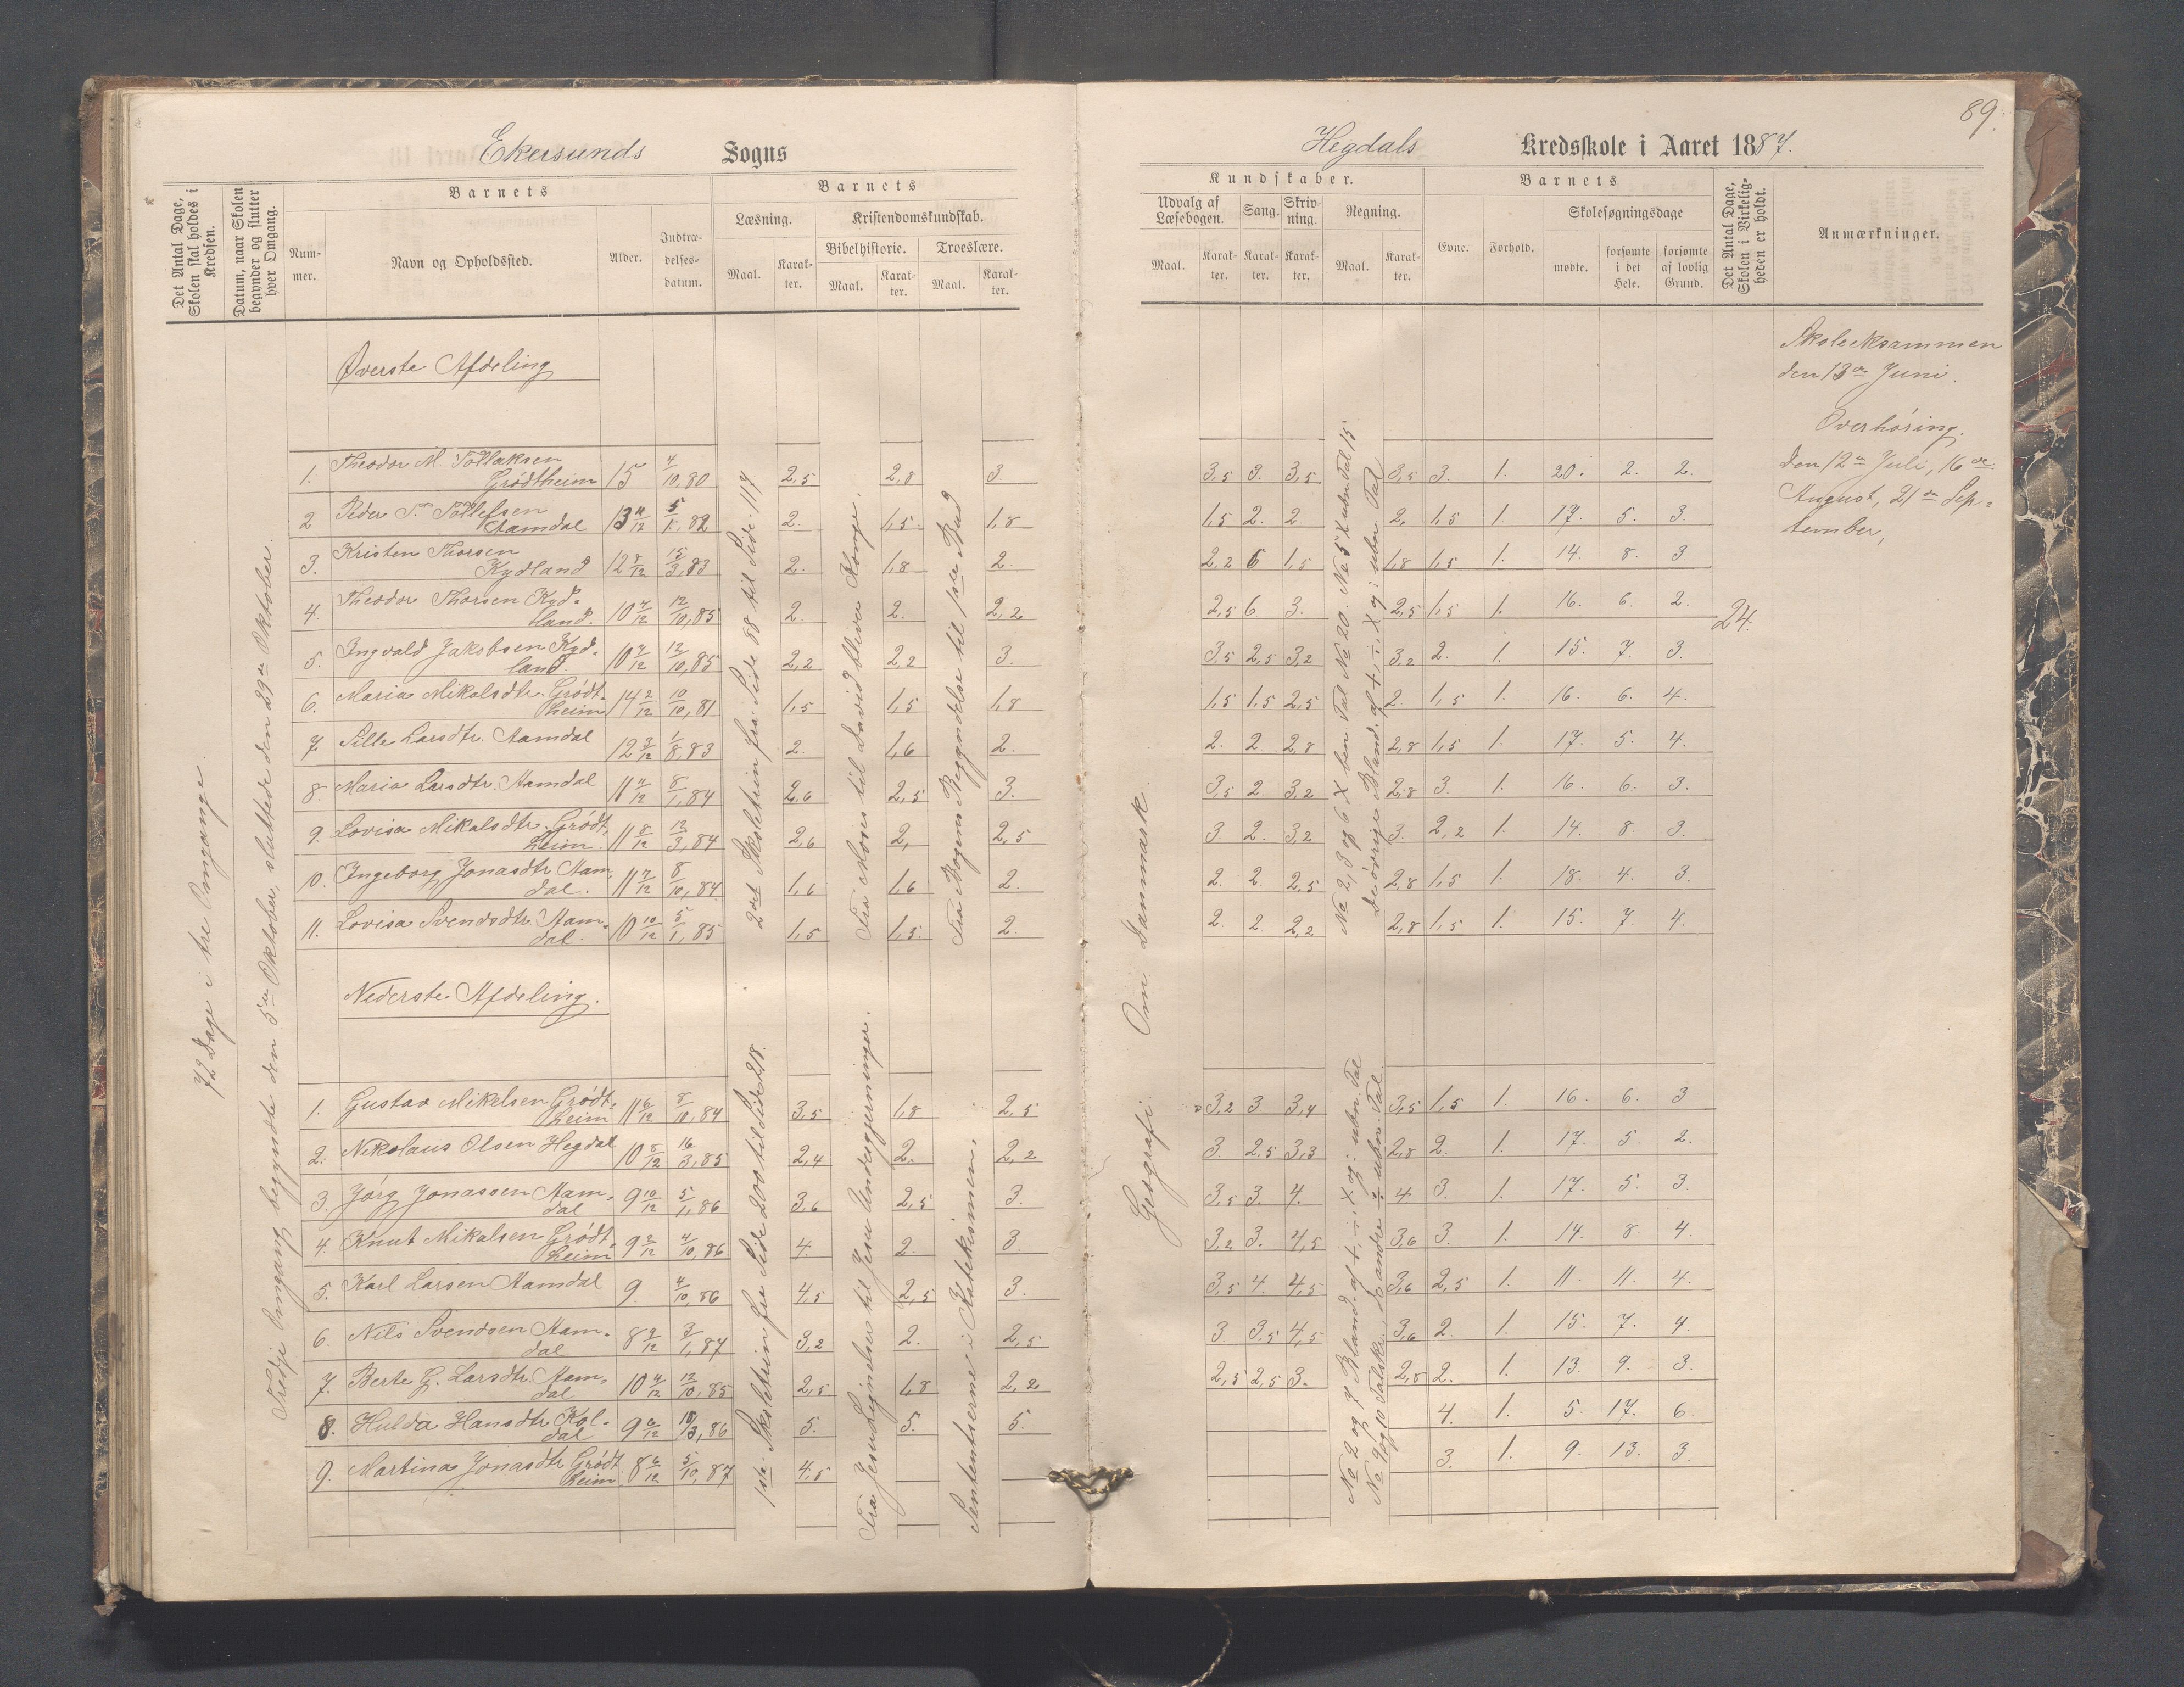 89.
Ekersunds Sogns
Hegdals Kredsskole i Aaret 1887.
Det Antal Dage, Skolen skal holdes i Kredsen.
Datum, naar Skolen begynder og slutter hver Omgang.
Barnets
Nummer.
Navn og Opholdssted.
Alder.
Indtrædelsesdatum.
Barnets
Læsning.
Kristendomskundskab.
Bibelhistorie.
Troeslære.
Maal. Karakter. Maal. Karakter. Maal. Karakter.
Kundskaber.
Udvalg af Læsebogen.
Sang.
Skrivning.
Regning.
Maal. Karakter. Karakter. Karakter. Maal. Karakter.
Barnets
Evne. Forhold.
Skolesøgningsdage
mødte. forsømte i det Hele. forsømte af lovlig Grund.
Det Antal Dage, Skolen i Virkeligheden er holdt.
Anmærkninger.
72 Dage i tre Omgange.
Tredje Omgang begyndte den 5te Oktober, sluttede den 29de Oktober.
Øverste Afdeling
1. Theodor M. Tollaksen Grødtheim 15 4/10,80 2,5 2,8 3. 3,5 3. 3,5 3,5 3. 1. 20. 2. 2.
2 Peder T. Tollefsen Aamdal 13 4/12 5/1,82 2. 1,5. 1,8 1,5 2. 2. 2. 1,5 1. 17. 5. 3.
3. Kristen Thorsen Kydland 12 8/12 15/3,83 2. 1,8 2. 2,2 6 1,5 1,8 1,5 1. 14. 8. 3.
4. Theodor Thorsen Kydland. 10 4/12 12/10,85 2. 2. 2,2 2,5 6 3. 2,5 1,5 1. 16. 6. 2.
5. Ingvald Jakobsen Kydland. 10 2/12 12/10,85 2,2 2,2 3. 3,5 2,5 3,2 3,2 2. 1. 15. 7. 3.
6. Maria Mikalsdtr. Grødtheim 14 2/12 10/10,81 1,5 1,5 1,8 1,5 1,5 2,5 2 1,5 1. 16. 6. 4.
7 Sille Larsdtr. Aamdal 12 3/12 1/8,83 2. 1,6 2. 2. 2. 2,8 2,8 1,5 1. 17. 5. 4.
8. Maria Larsdtr. Aamdal 11 4/12 8/1,84 2,6 2,5 3. 3,5 2. 3,2 2,8 3. 1. 16. 6. 3.
9. Lovisa Mikalsdtr. Grødtheim. 11 8/12 12/3,84 2,6 2, 2,5 3. 2. 3,2 3. 2,2 1. 14. 8. 3.
10. Ingeborg Jonasdtr. Aamdal. 11 4/12 8/10,84 1,6 1,6 2. 2. 2. 2,5 2,8 1,5 1. 18. 4. 3.
11. Lovisa Svendsdtr. Aamdal. 10 10/12 5/1,85 1,5 1,5. 2. 2. 2. 2,2 2,8 1,5 1. 15. 7. 4.
2det Skoletrin fra Side 88 til Side 117
Fra Moses til David bliver Konge.
Fra Bogens Begyndelse til 1ste Bud
Geografi. Om Danmark.
No 2, 3 og 6 X ben Tal No 20. No 5 X ubn Tal 15
De øvrige Bland. af +, ÷, X og : ubn Tal
24.
Skoleeksammen
den 13de Juni.
Overhøring.
den 12te Juli, 16de
August, 21de Sep-
tember,
Nederste Afdeling.
1. Gustav Mikalsen Grødtheim 11 6/12 8/10,84 3,5 1,8 2,5 3,2 3. 3,4 3,5 1,5 1. 16. 6. 3
2. Nikolaus Olsen Hegdal 10 8/12 16/3,85 2,4 2. 2,2 3. 2,5 3,3 2,8 2. 1. 17. 5. 2.
3. Jørg Jonassen Aamdal 9 10/12 5/1,86 3,6 2,5 3. 3,5 3. 4. 4. 3. 1. 17. 5. 3.
4. Knut Mikalsen Grødtheim 9 2/12 4/10,86 4. 2. 3. 3,2 3. 4,5 3,6 3. 1. 14. 8. 4.
5. Karl Larsen Aamdal 9. 4/10,86 4,5 2,5 3. 3,5 4. 4,5 3,6 2,5 1. 11. 11. 4.
6. Nils Svendsen Aamdal 8 9/12 3/1,87 3,2 2. 2,5 3 3,5 4,5 3,6 2. 1. 15. 7. 4.
7. Berte G. Larsdtr. Aamdal 10 4/12 12/10,85 2,5 1,8 2,2 2,5 2,5 3. 2,8 2. 1. 13. 9. 3.
8. Hulda Hansdtr. Koldal 9 6/12 15/3,86 5. 5. 5. 4. 1. 5. 17. 6.
9. Martina Jonasdtr. Grødtheim 8 6/12 5/10,87 4,5 3. 1. 9. 13. 3.
1ste Skoletrin fra Side 200 til Side 218.
Fra Jesu Lignelser til Jesu Undergjerninger.
Sententserne i Katekismen.
No 2 og 7 Bland. af +, ÷, X og : ubn. Tal